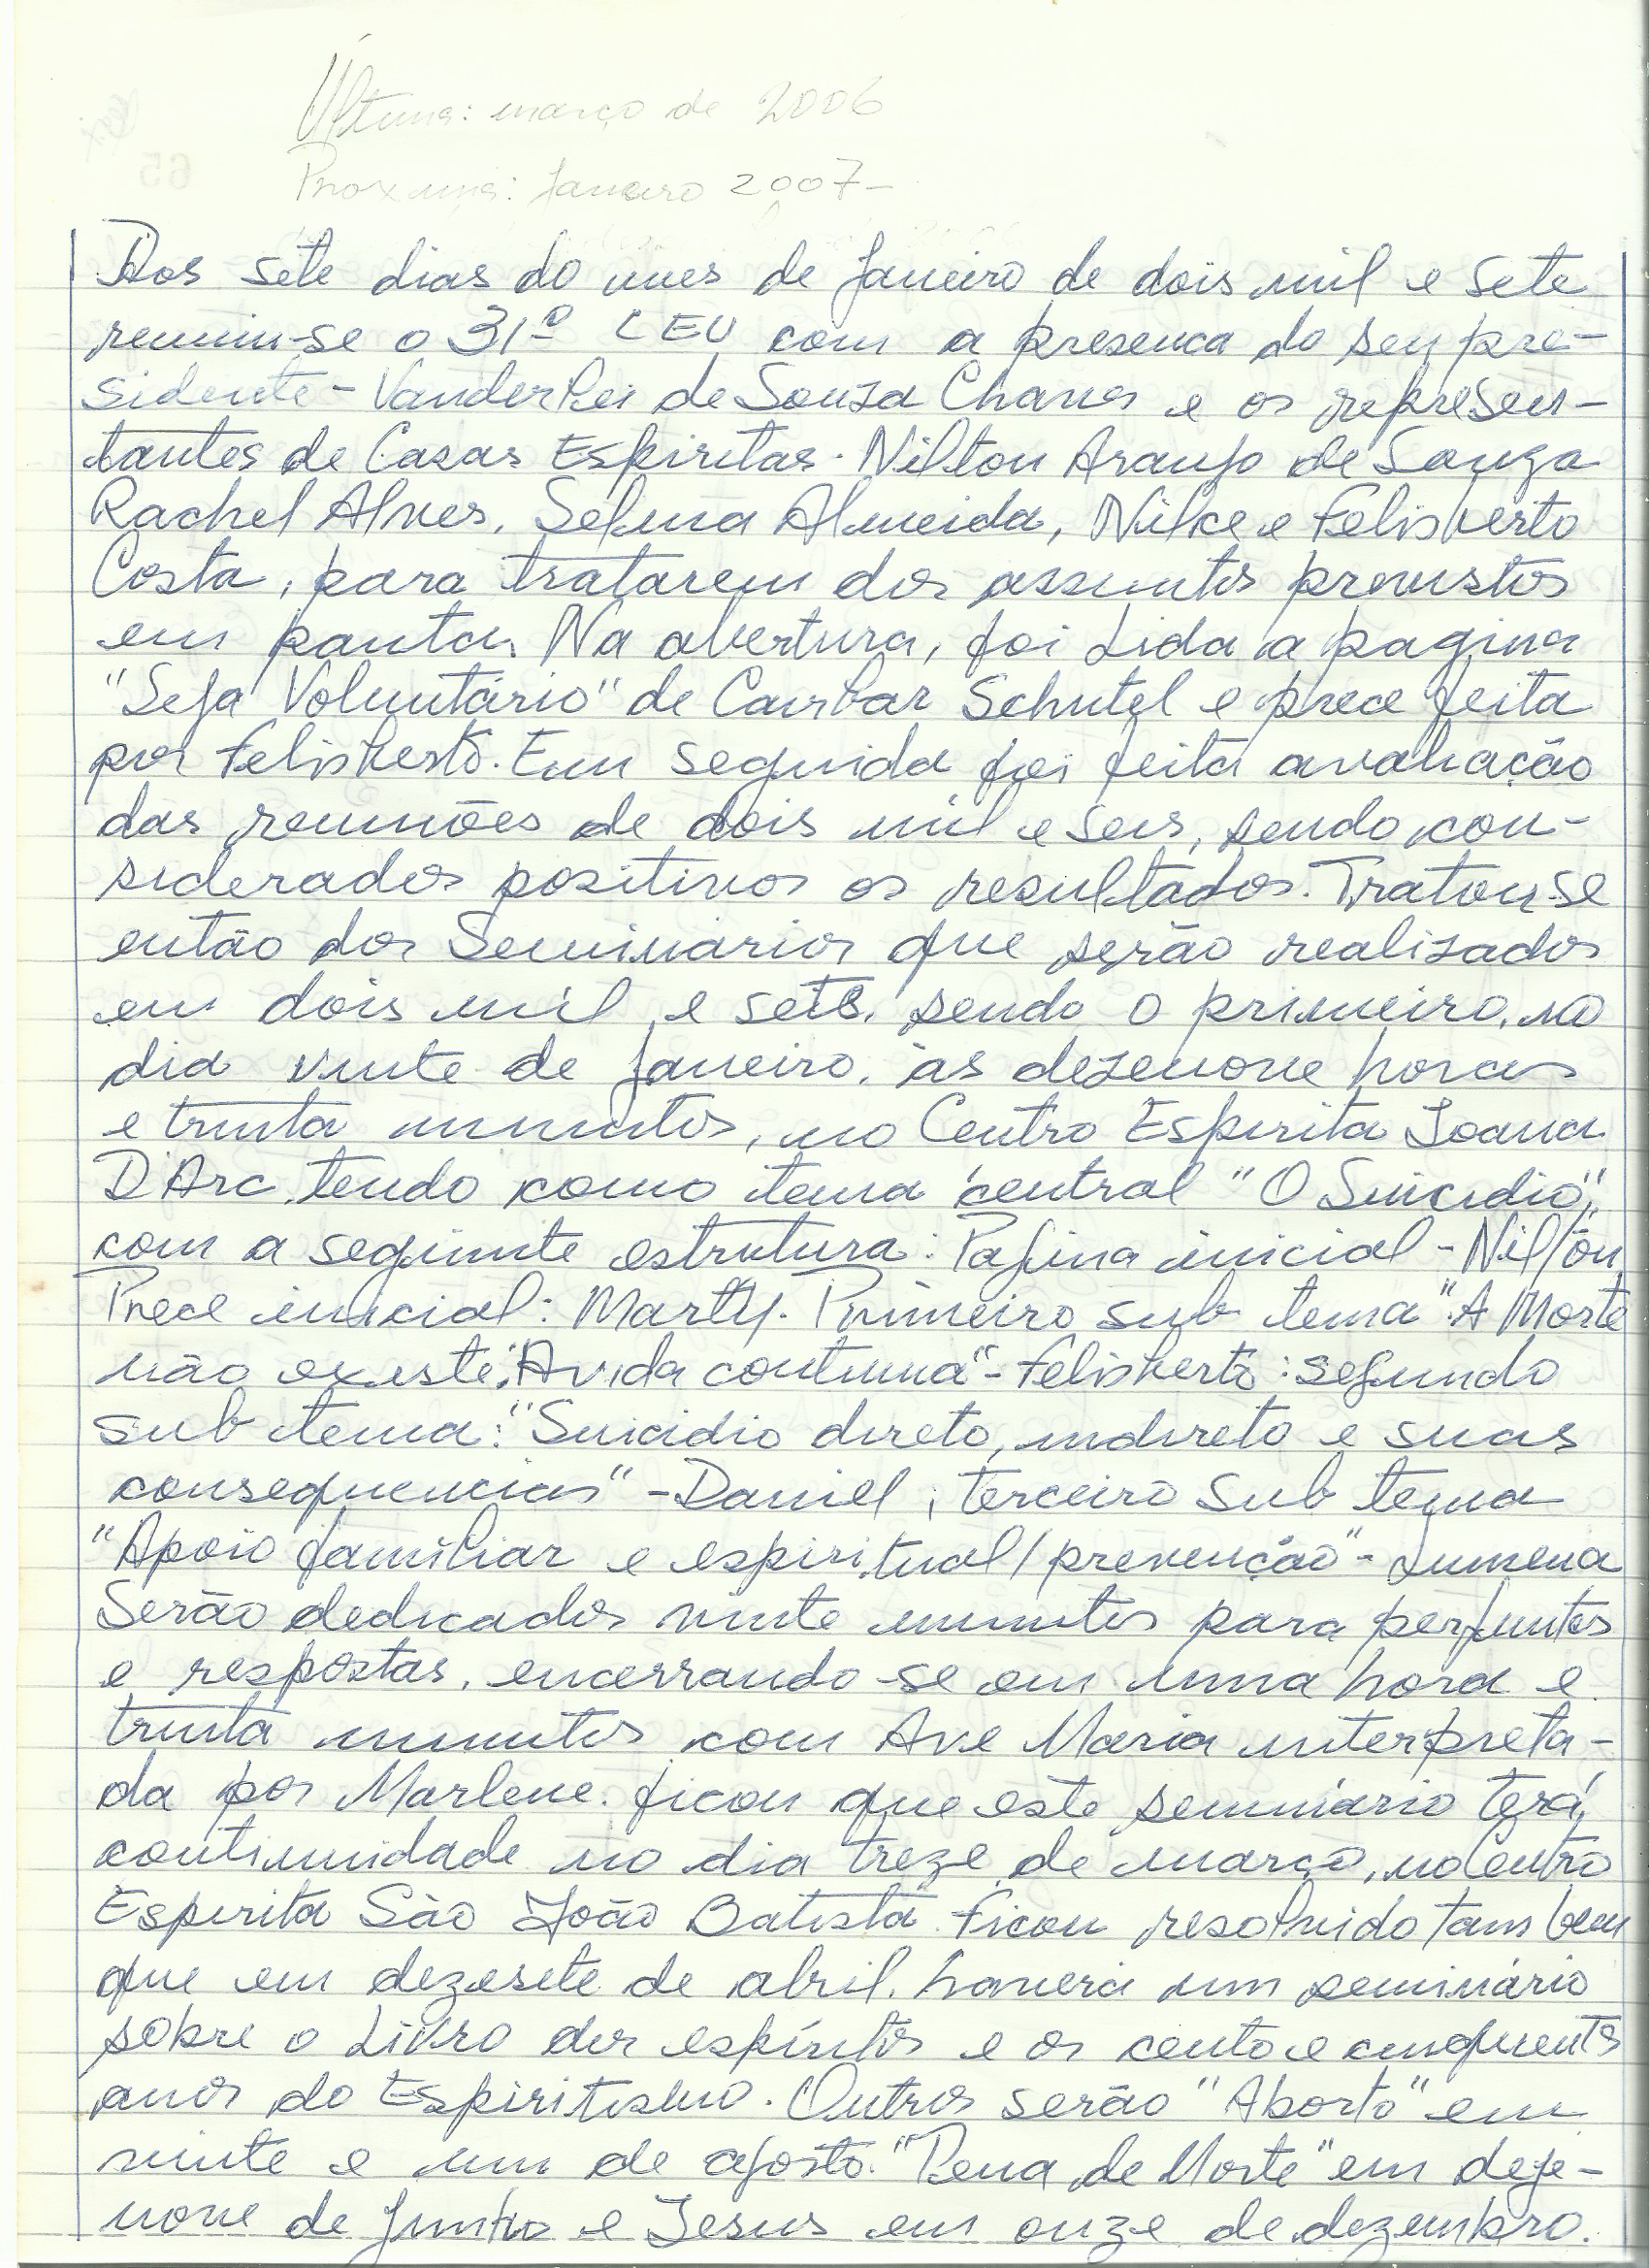 Última: março de 2006
Proxima: Janeiro 2007-
65
Aos sete dias do mes de Janeiro de dois mil e sete
reuniu-se o 31º CEU com a presenca do seu pre-
sidente - Vanderlei de Souza Chaves e os represen-
tantes de Casas Espiritas. Nilton Araujo de Souza
Rachel Alves, Selma Almeida, Nilce e Felisberto
Costa, para tratarem dos assuntos previstos
em pauta. Na abertura, foi Lida a pagina
"Seja Voluntário" de Cairbar Schutel e prece feita
por Felisberto. Em seguida foi feita avaliação
das reuniões de dois mil e seis, sendo con-
siderados positivos os resultados. Tratou-se
então dos Seminarios que serão realizados
em dois mil e sete, sendo o primeiro, no
dia vinte de Janeiro, às dezenove horas
e trinta minutos, no Centro Espirita Joana
D'Arc, tendo como tema central "O Suicidio",
com a seguinte estrutura: Pagina inicial - Nilton
Prece inicial: Marty. Primeiro sub tema "A Morte
não existe: A vida continua" - Felisberto: segundo
sub tema: "Suicidio direto, indireto e suas
consequencias" - Daniel; terceiro sub tema
"Apoio familiar e espiritual/prevenção" - Lumena
Serão dedicados vinte minutos para perguntas
e respostas, encerrando-se em uma hora e
trinta minutos com Ave Maria interpreta-
da por Marlene. ficou que este seminário terá
continuidade no dia treze de março, no Centro
Espirita São João Batista. Ficou resolvido tambem
que em dezesete de abril, havera um seminário
sobre o Livro dos espíritos e os cento e cinquenta
anos do Espiritismo. Outros serão "Aborto" em
vinte e um de agosto. "Pena de Morte" em deze-
nove de Junho e Jesus em onze de dezembro.